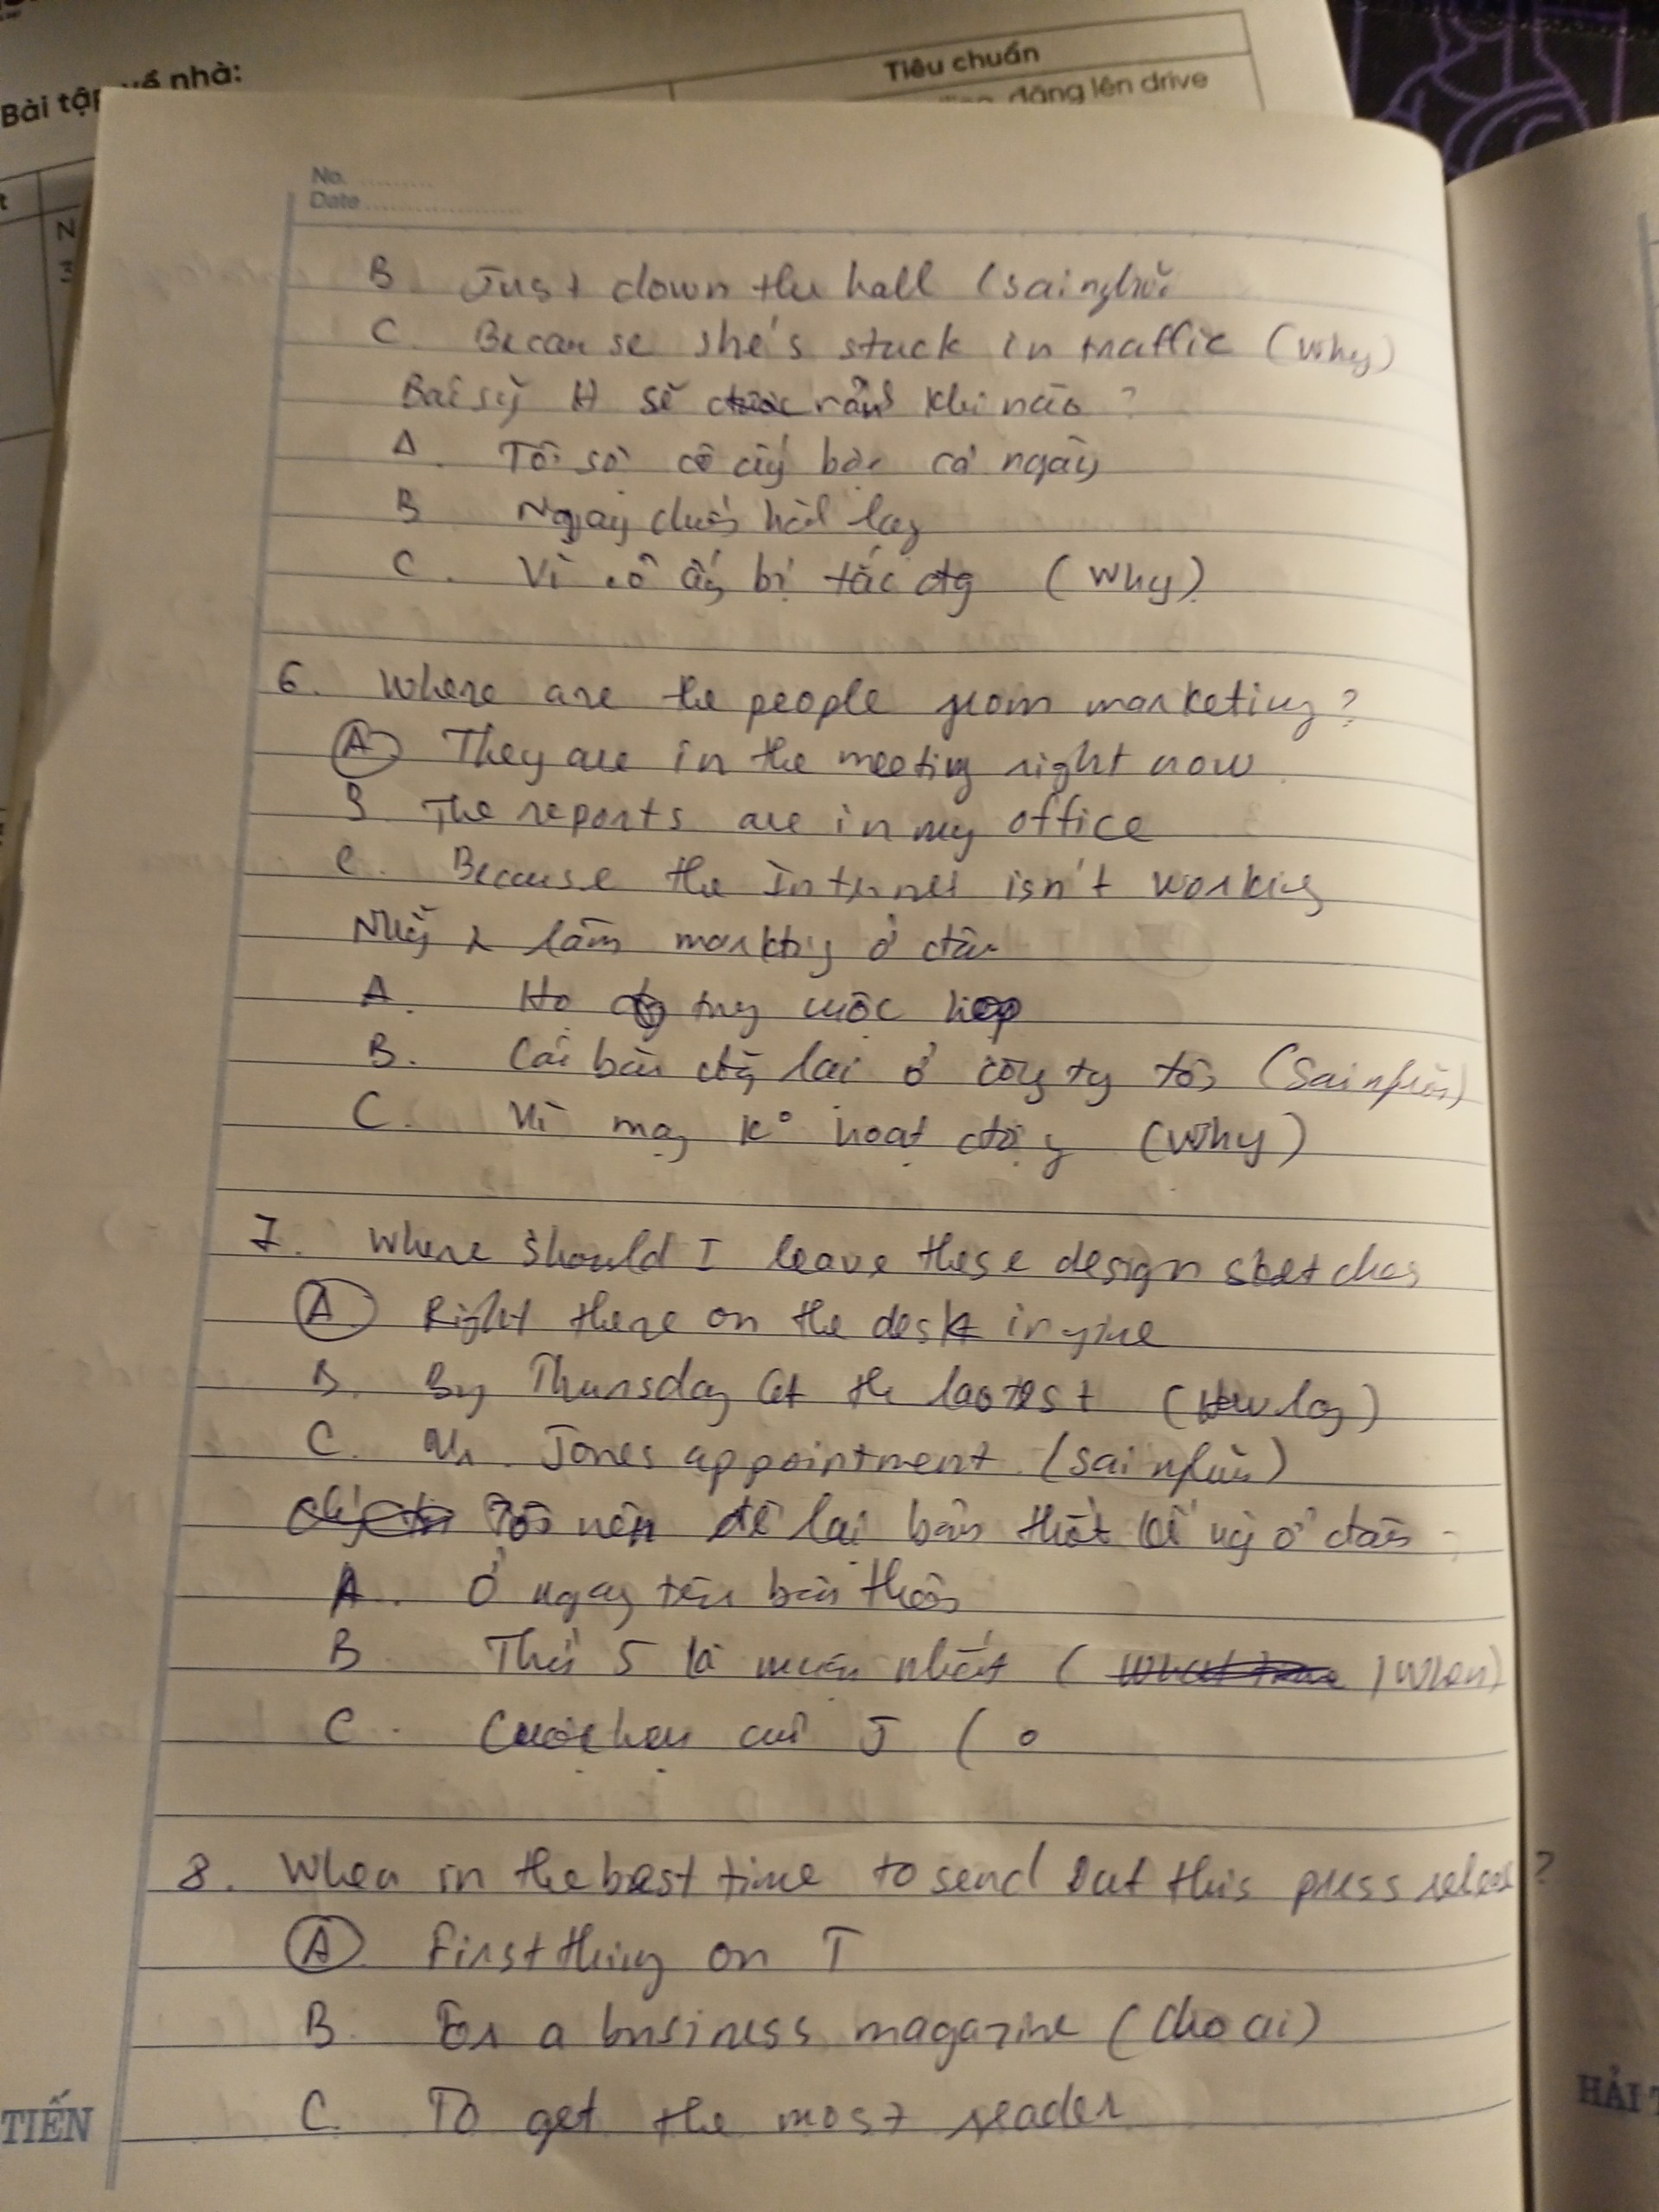 Bài tập về nhà:
Tiêu chuẩn
đăng lên drive
No.
Date
B Just down the hall (sai nghĩa
C. Because she's stuck in traffic (Why)
Bác sỹ H sẽ rảnh khi nào?
A. Tôi sợ cô ấy bận cả ngày
B Ngay dưới hành lang
C. Vì cô ấy bị tắc đg (Why)
6. Where are the people from marketing?
A They are in the meeting right now.
B The reports are in my office
C. Because the Internet isn't working
làm ở đâu
A. Họ cuộc họp
B. Cái báo lại ở công ty tôi (Sai nghĩa)
C. Vì mạg k° hoạt độg (Why)
7. Where should I leave these design sketches
A Right there on the desk
B. By Thursday at the latest
C. Mr. Jones appointment. (sai nghĩa)
Tôi nên để lại bản thiết kế này ở đâu
A. Ở ngay trên bàn
B Thứ 5 là muộn nhất ( When)
C. Cuộc hẹn của J (
8. When in the best time to send out this press release?
A First thing on T
B. For a business magazine (Cho ai)
C. To get the most reader
TIẾN
HẢI T